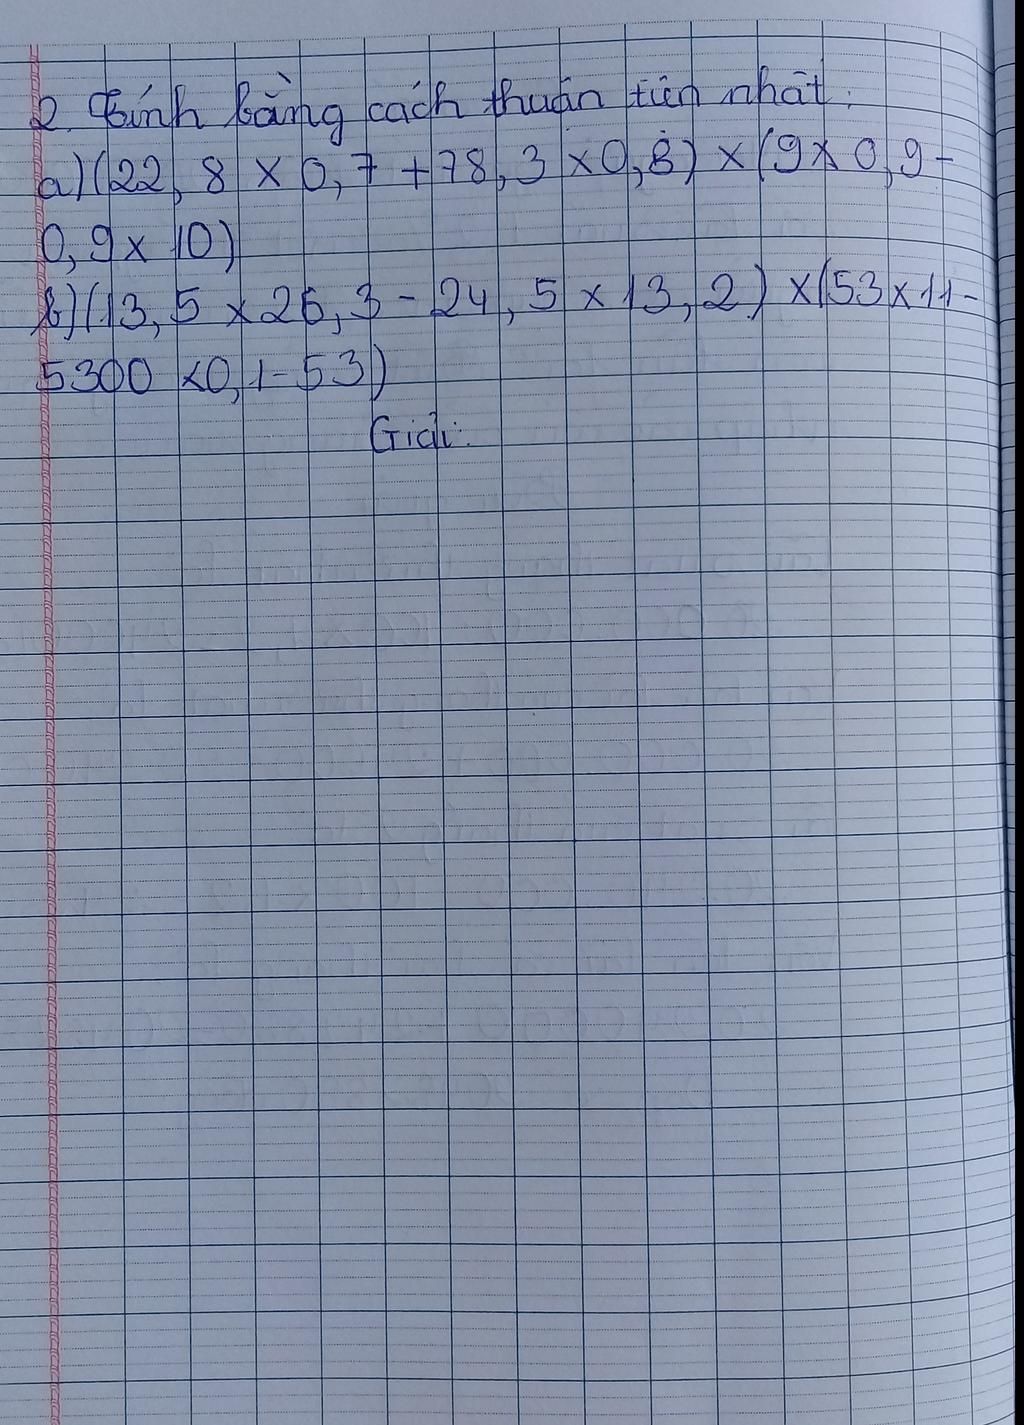 2. Tính bằng cách thuận tiện nhất:
a) (22,8 x 0,7 + 78,3 x 0,8) x (9 x 0,9 -
0,9 x 10)
b) (13,5 x 26,3 - 24,5 x 13,2) x (53 x 11 -
5300 x 0,1 - 53)
Giải: